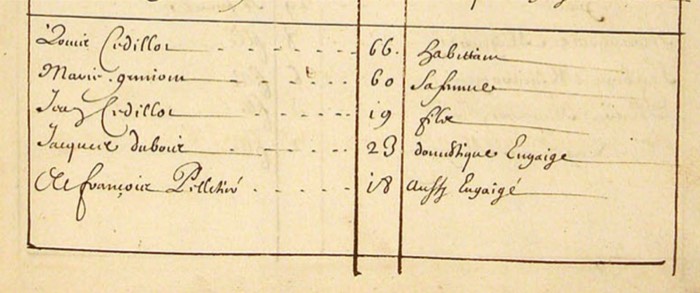 Louis Cedillot 66. habittan
Marie 60 sa femme
Jean Cedillot 19 filz
Jacques dubois 23 domestique Engaigé
Et françois Pelletié 18 aussy Engaigé